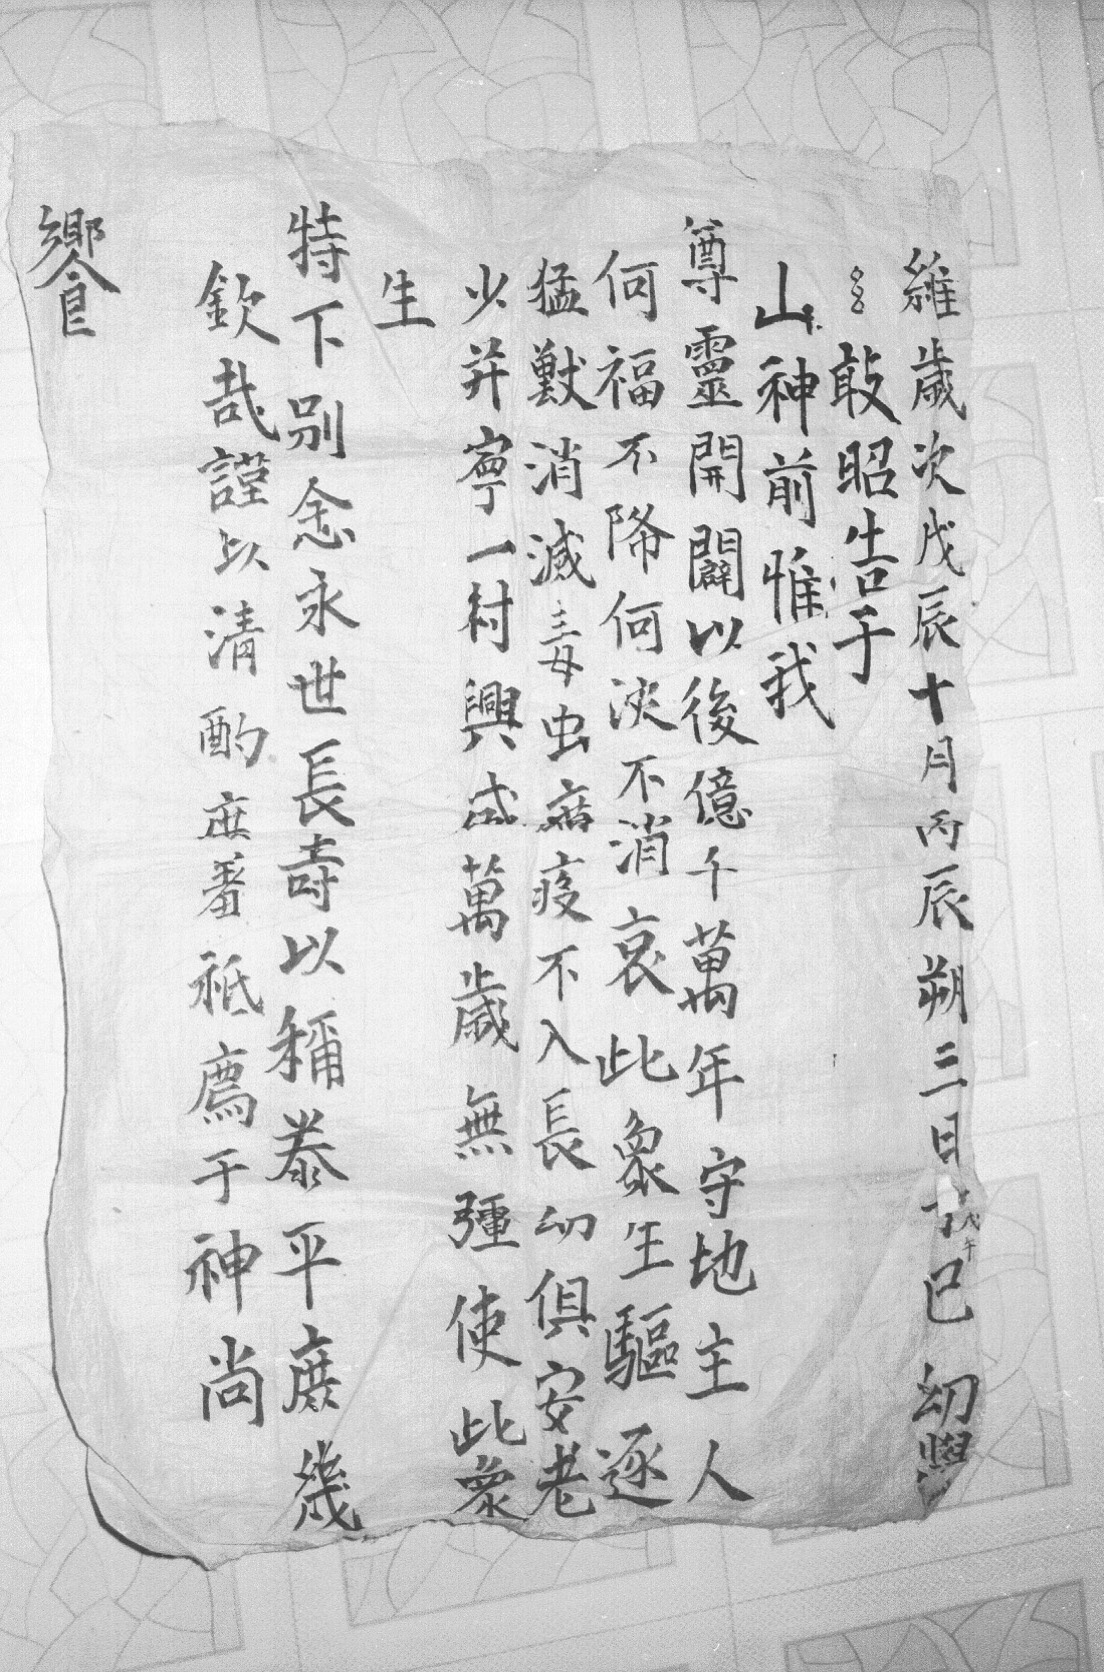 維歲次戊辰十月丙辰朔三日巳戊午幼學
敢昭告于
山神前惟我
尊靈開闢以後億千萬年守地主人
何福不降何灾不消哀此衆生驅逐
猛獸消滅毒虫病疫不入長幼俱安老
少并寧一村興盛萬歲無疆使此衆
生
特下别念永世長壽以稱泰平庶幾
欽哉謹以清酌庶羞祗薦于神尚
饗